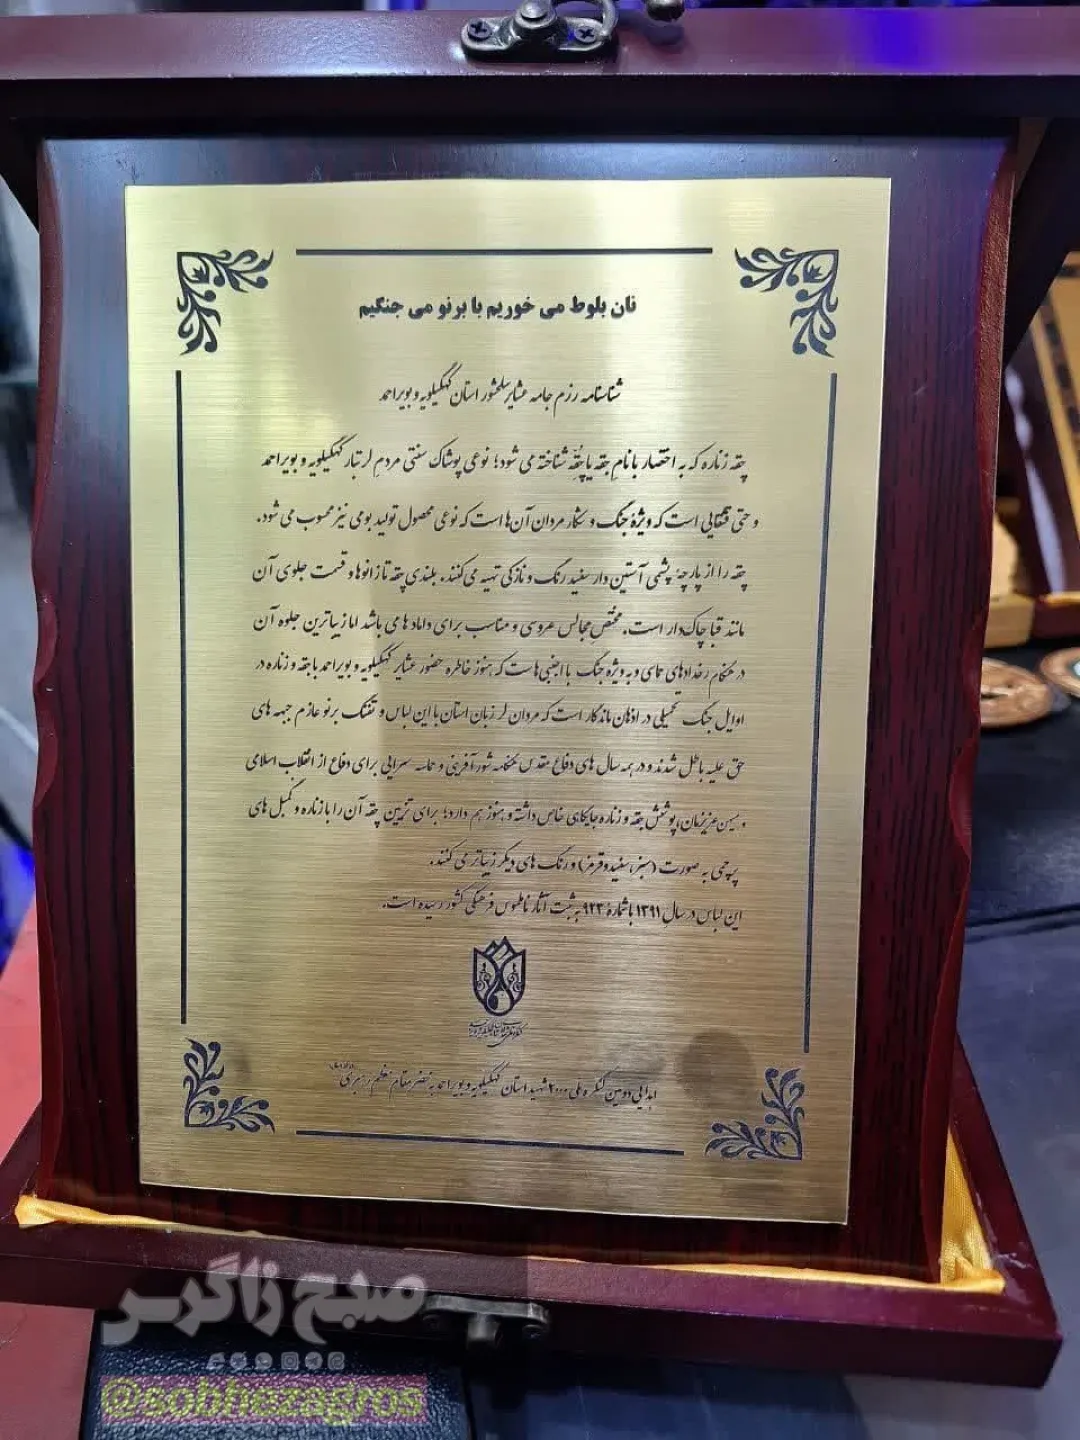 نان بلوط می خوریم با برنو می جنگیم
شناسنامه رزم جامه عشایر سلحشور استان کهگیلویه و بویراحمد
چقه زناره که به اختصار با نامِ جقه یا چُقِّه شناخته می شود؛ نوعی پوشاک سنتی مردم لر تبار کهگیلویه و بویراحمد
و حتی قشقایی است که ویژهٔ جنگ و شکار مردان آن ها است که نوعی محصول تولید بومی نیز محسوب می شود.
چقه را از پارچهٔ پشمی آستین دار سفید رنگ و نازکی تهیه می کنند. بلندی چقه تا زانوها و قسمت جلوی آن
مانند قبا چاک دار است. مختصِ مجالس عروسی و مناسب برای داماد ها می باشد اما زیباترین جلوه آن
در هنگام رخدادهای حماسی و به ویژه جنگ با اجنبی هاست که هنوز خاطره حضور عشایر کهگیلویه و بویراحمد با جقه و زناره در
اوایل جنگ تحمیلی در اذهان ماندگار است که مردان لر زبان استان با این لباس و تفنگ برنو عازم جبهه های
حق علیه باطل شدند و در همه سال های دفاع مقدس هنگامه شورآفرینی و حماسه سرایی برای دفاع از انقلاب اسلامی
و میهن عزیزمان، پوشش جقه و زناره جایگاهی خاص داشته و هنوز هم دارد؛ برای تزیین چقه آن را با زناره و گمبل های
پرچمی به صورت (سبز، سفید و قرمز) و رنگ های دیگر زیباتر می کنند.
این لباس در سال ۱۳۹۱ با شمارهٔ ۹۲۳ به ثبت آثار ناملموس فرهنگی کشور رسیده است.
اهدایی دومین کنگره ملی ۲۰۰۰ شهید استان کهگیلویه و بویراحمد به محضر مقام معظم رهبری
صبح زاگرس
@sobhezagros